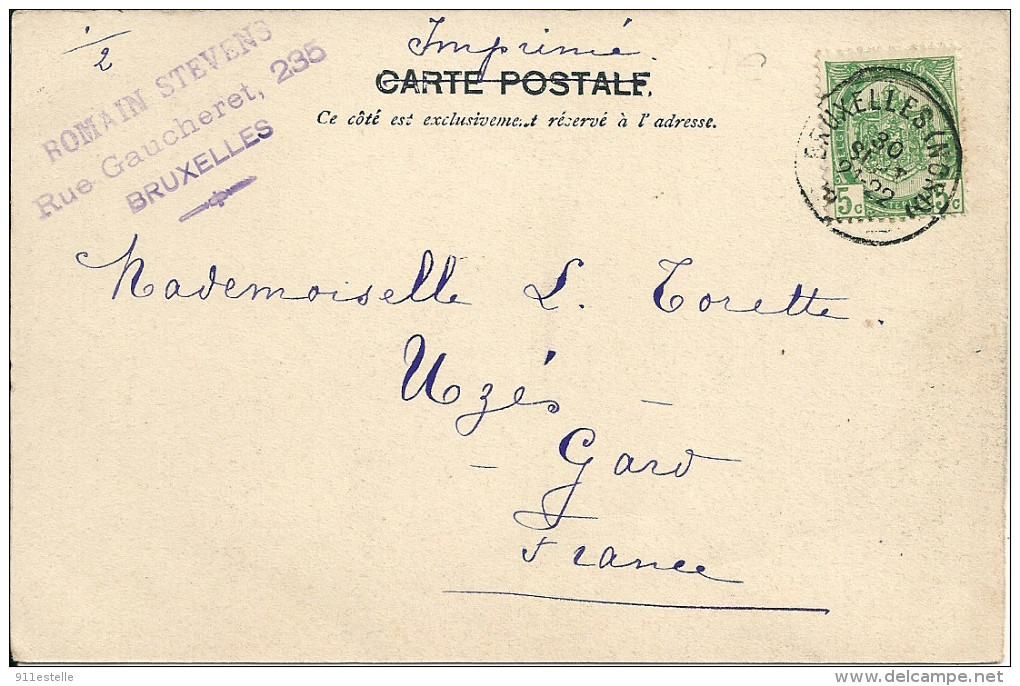 1/2
Imprimé.
ROMAIN STEVENS
Rue Gaucheret, 235
BRUXELLES
CARTE POSTALE.
Ce côté est exclusivement réservé à l'adresse.
BRUXELLES (NORD)
30
21-22
5c 5c
Mademoiselle L. Torette.
Uzés -
- Gard
France
911estelle
delcampe.net